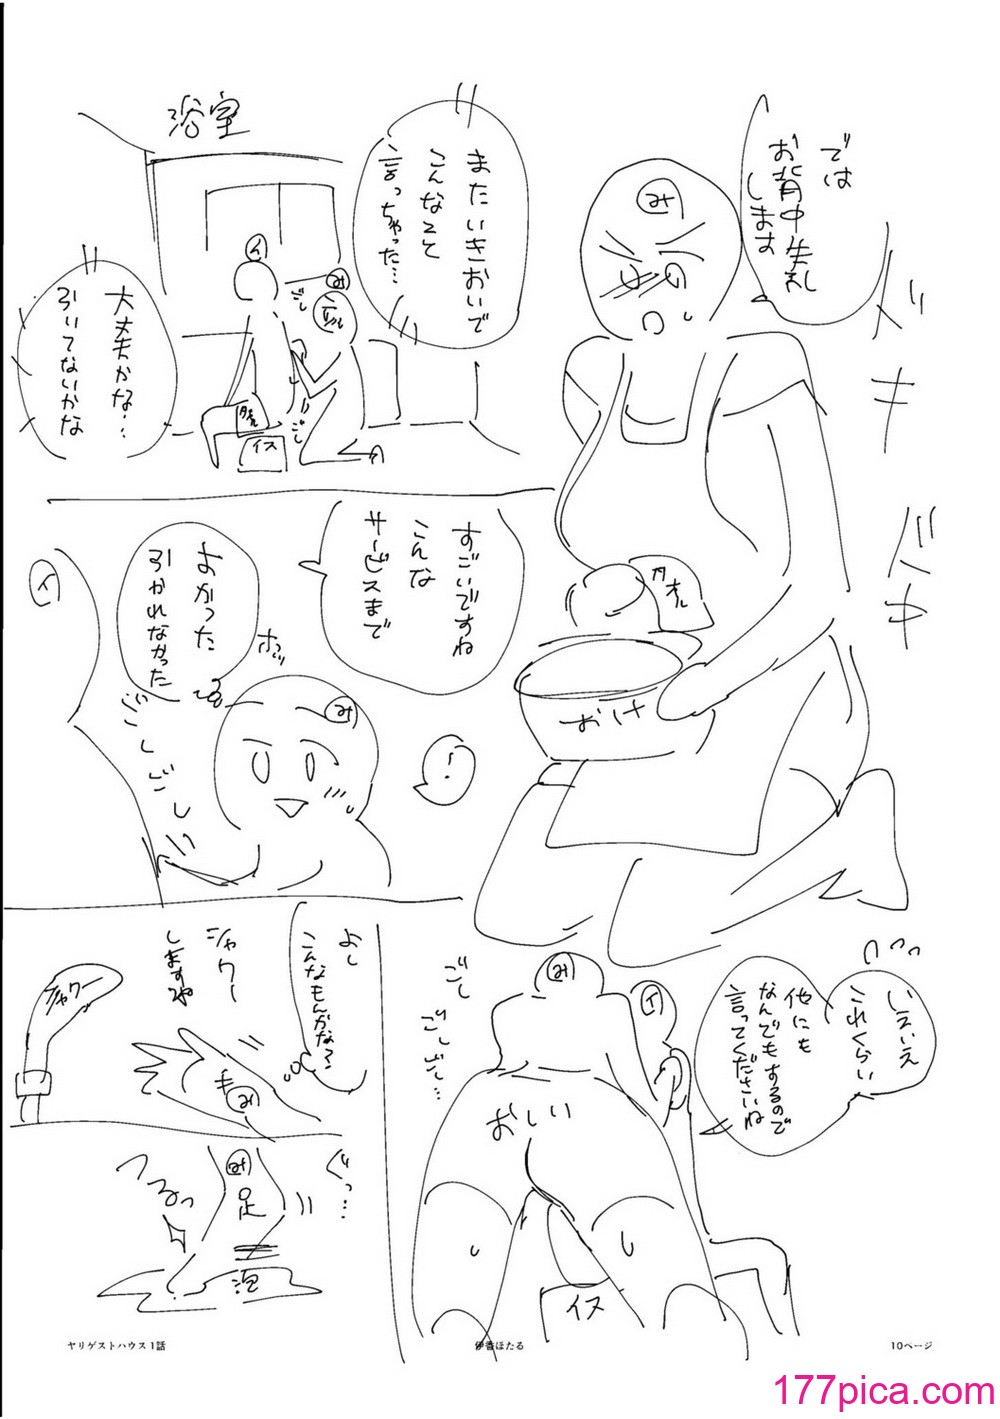 では
お背中失礼
します
み
ドキ
ドキ
タオル
おけ
浴室
またいきおいで
こんなこと
言っちゃった…
イ
み
ごし
ごし
タオル
イス
大丈夫かな…
引いてないかな
すごいですね
こんな
サービスまで
よかった
引かれなかった
ホッ
イ
み
ごしごし
!
いえいえ
これくらい
他にも
なんでもするので
言ってくださいね
み
イ
ごし
ごしごし…
おしい
イス
よし
こんなもんかな?
シャワー
しますね
シャワー
手
み
ぐっ…
み
足
つるっ
泡
ヤリゲストハウス1話
伊香ほたる
10ページ
177pica.com